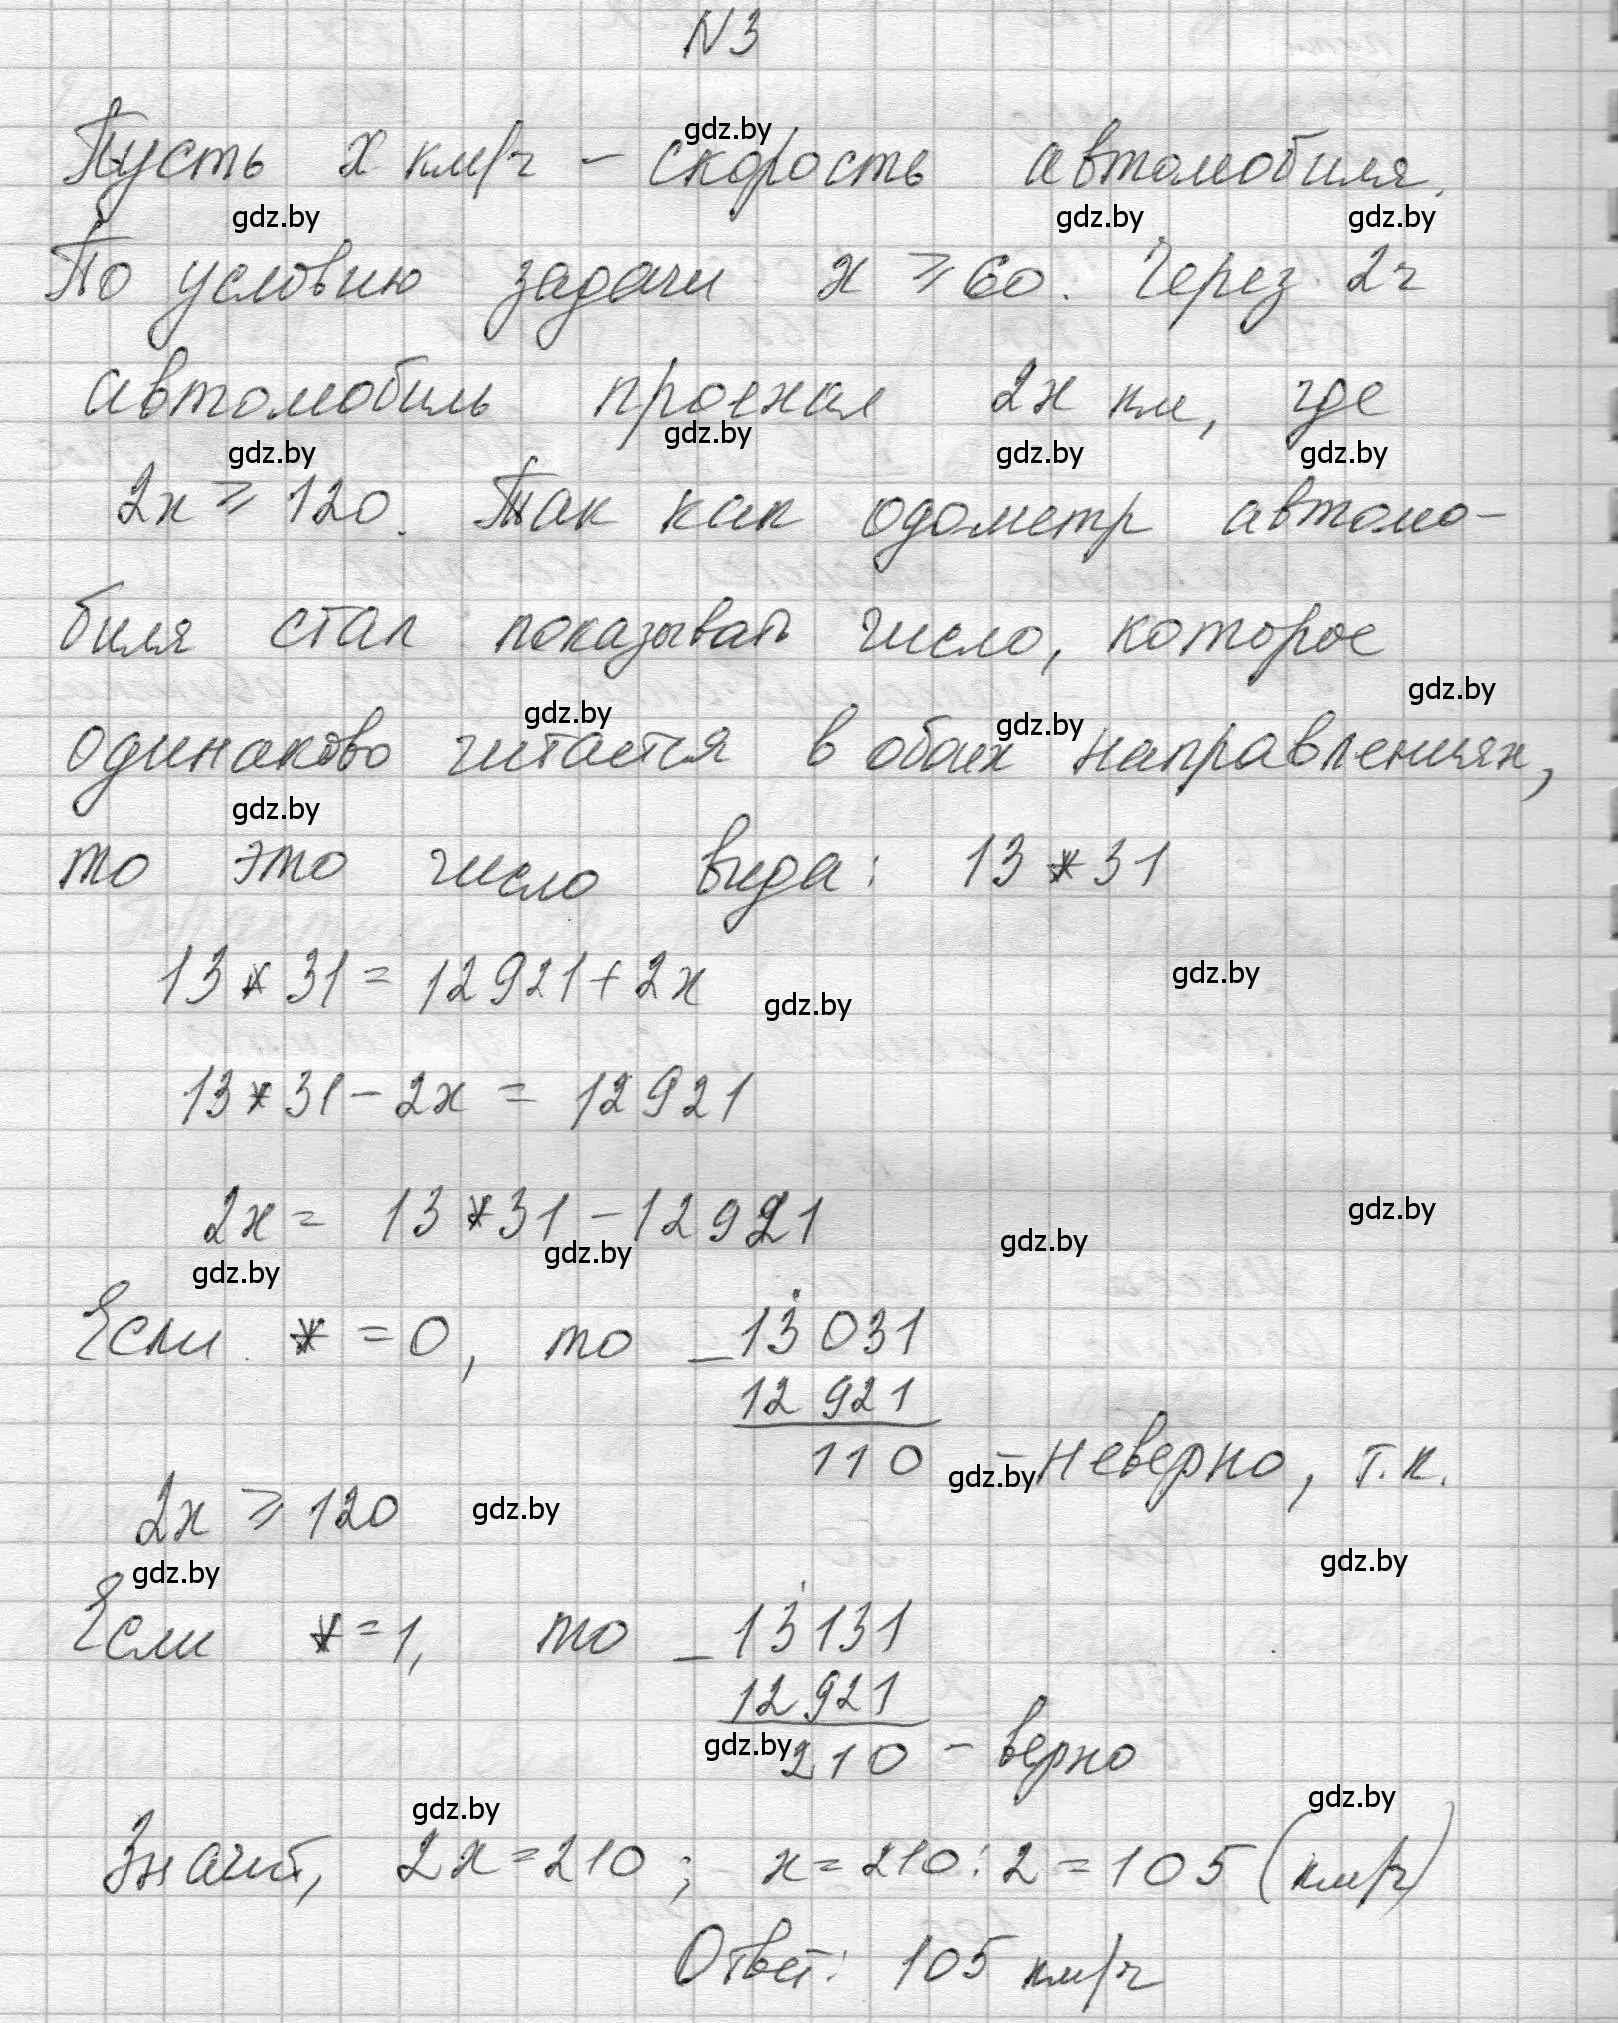 N3
gdz.by
Пусть x км/ч – скорость автомобиля.
gdz.by gdz.by gdz.by
По условию задачи x ⩾ 60. Через 2ч
автомобиль проехал 2x км, где
gdz.by gdz.by gdz.by gdz.by
2x ⩾ 120. Так как одометр автомо-
биля стал показывать число, которое
gdz.by gdz.by gdz.by
одинаково читается в обоих направлениях,
gdz.by
то это число вида: 13*31
13*31 = 12921 + 2x
gdz.by gdz.by
13*31 – 2x = 12921
2x = 13*31 – 12921
gdz.by gdz.by gdz.by gdz.by
Если * = 0, то – 13031
12921
110 – неверно, т.к.
gdz.by
2x ⩾ 120
gdz.by
gdz.by gdz.by
Если * = 1, то – 13131
12921
210 – верно
gdz.by
gdz.by gdz.by
Значит, 2x = 210; x = 210 : 2 = 105 (км/ч)
Ответ: 105 км/ч